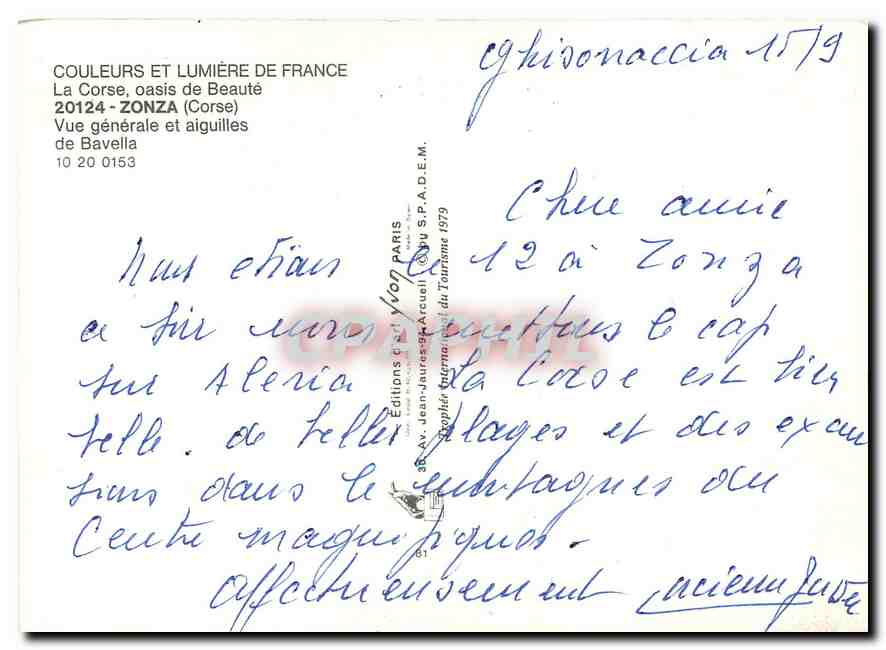 COULEURS ET LUMIÈRE DE FRANCE
La Corse, oasis de Beauté
20124 - ZONZA (Corse)
Vue générale et aiguilles
de Bavella
10 20 0153
Ghisonaccia 15/9
Chère amie
Nous étions le 12 à Zonza
ce soir nous mettons le cap
sur Aleria La Corse est bien
belle. de belles plages et des excur
sions dans les montagnes du
Centre magnifiques.
Affectueusement
Editions d'art yvon PARIS
Made in
36, Av. Jean-Jaurès-94-Arcueil © ou S.P.A.D.E.M.
Trophée International du Tourisme 1979
81
CPAPHIL